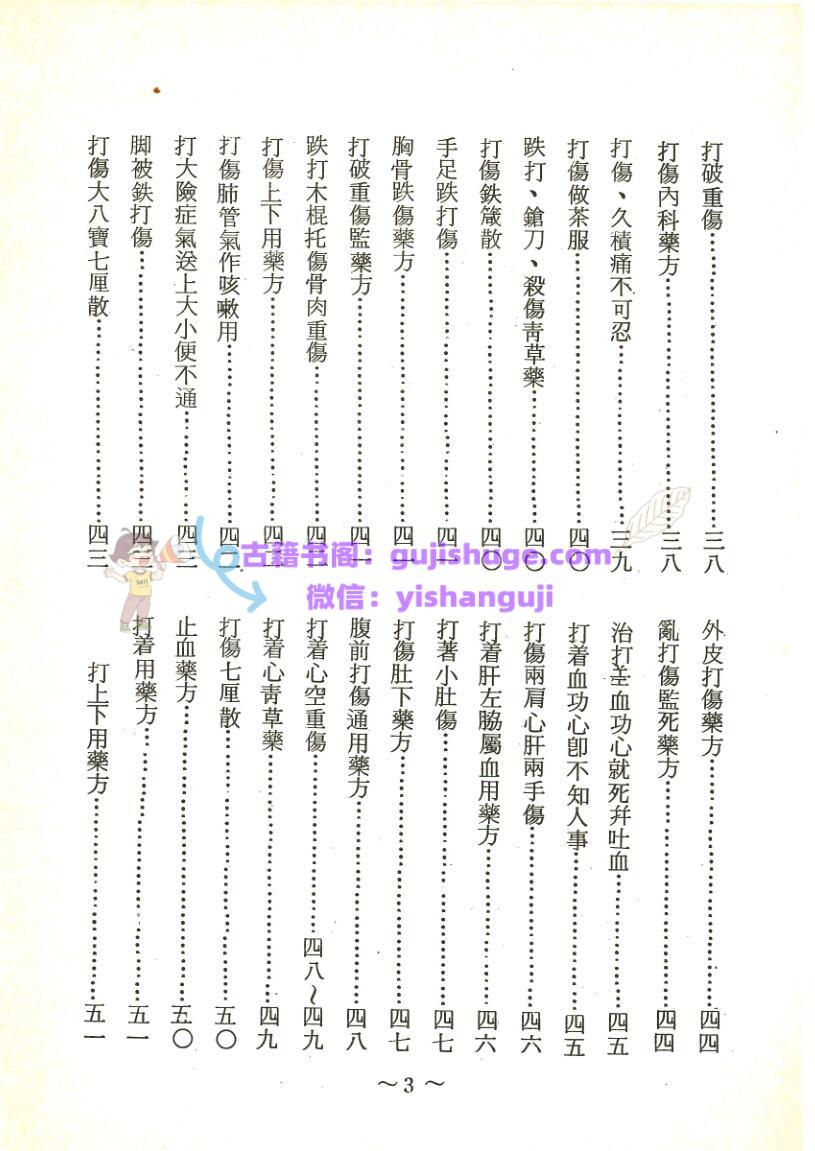 打破重傷……三八
打傷內科藥方……三八
打傷、久積痛不可忍……三九
打傷做茶服……四〇
跌打、鎗刀、殺傷靑草藥……四〇
打傷鉄箴散……四〇
手足跌打傷……四一
胸骨跌傷藥方……四一
打破重傷監藥方……四一
跌打木棍托傷骨肉重傷……四二
打傷上下用藥方……四二
打傷肺管氣作咳嗽用……四二
打大險症氣送上大小便不通……四三
脚被鉄打傷……四三
打傷大八寶七厘散……四三
外皮打傷藥方……四四
亂打傷監死藥方……四四
治打着血功心就死幷吐血……四五
打着血功心卽不知人事……四五
打傷兩肩心肝兩手傷……四六
打着肝左脇屬血用藥方……四六
打著小肚傷……四七
打傷肚下藥方……四七
腹前打傷通用藥方……四八
打着心空重傷……四八~四九
打着心靑草藥……四九
打傷七厘散……五〇
止血藥方……五〇
打着用藥方……五一
打上下用藥方……五一
~3~
古籍书阁：gujishuge.com
微信：yishanguji